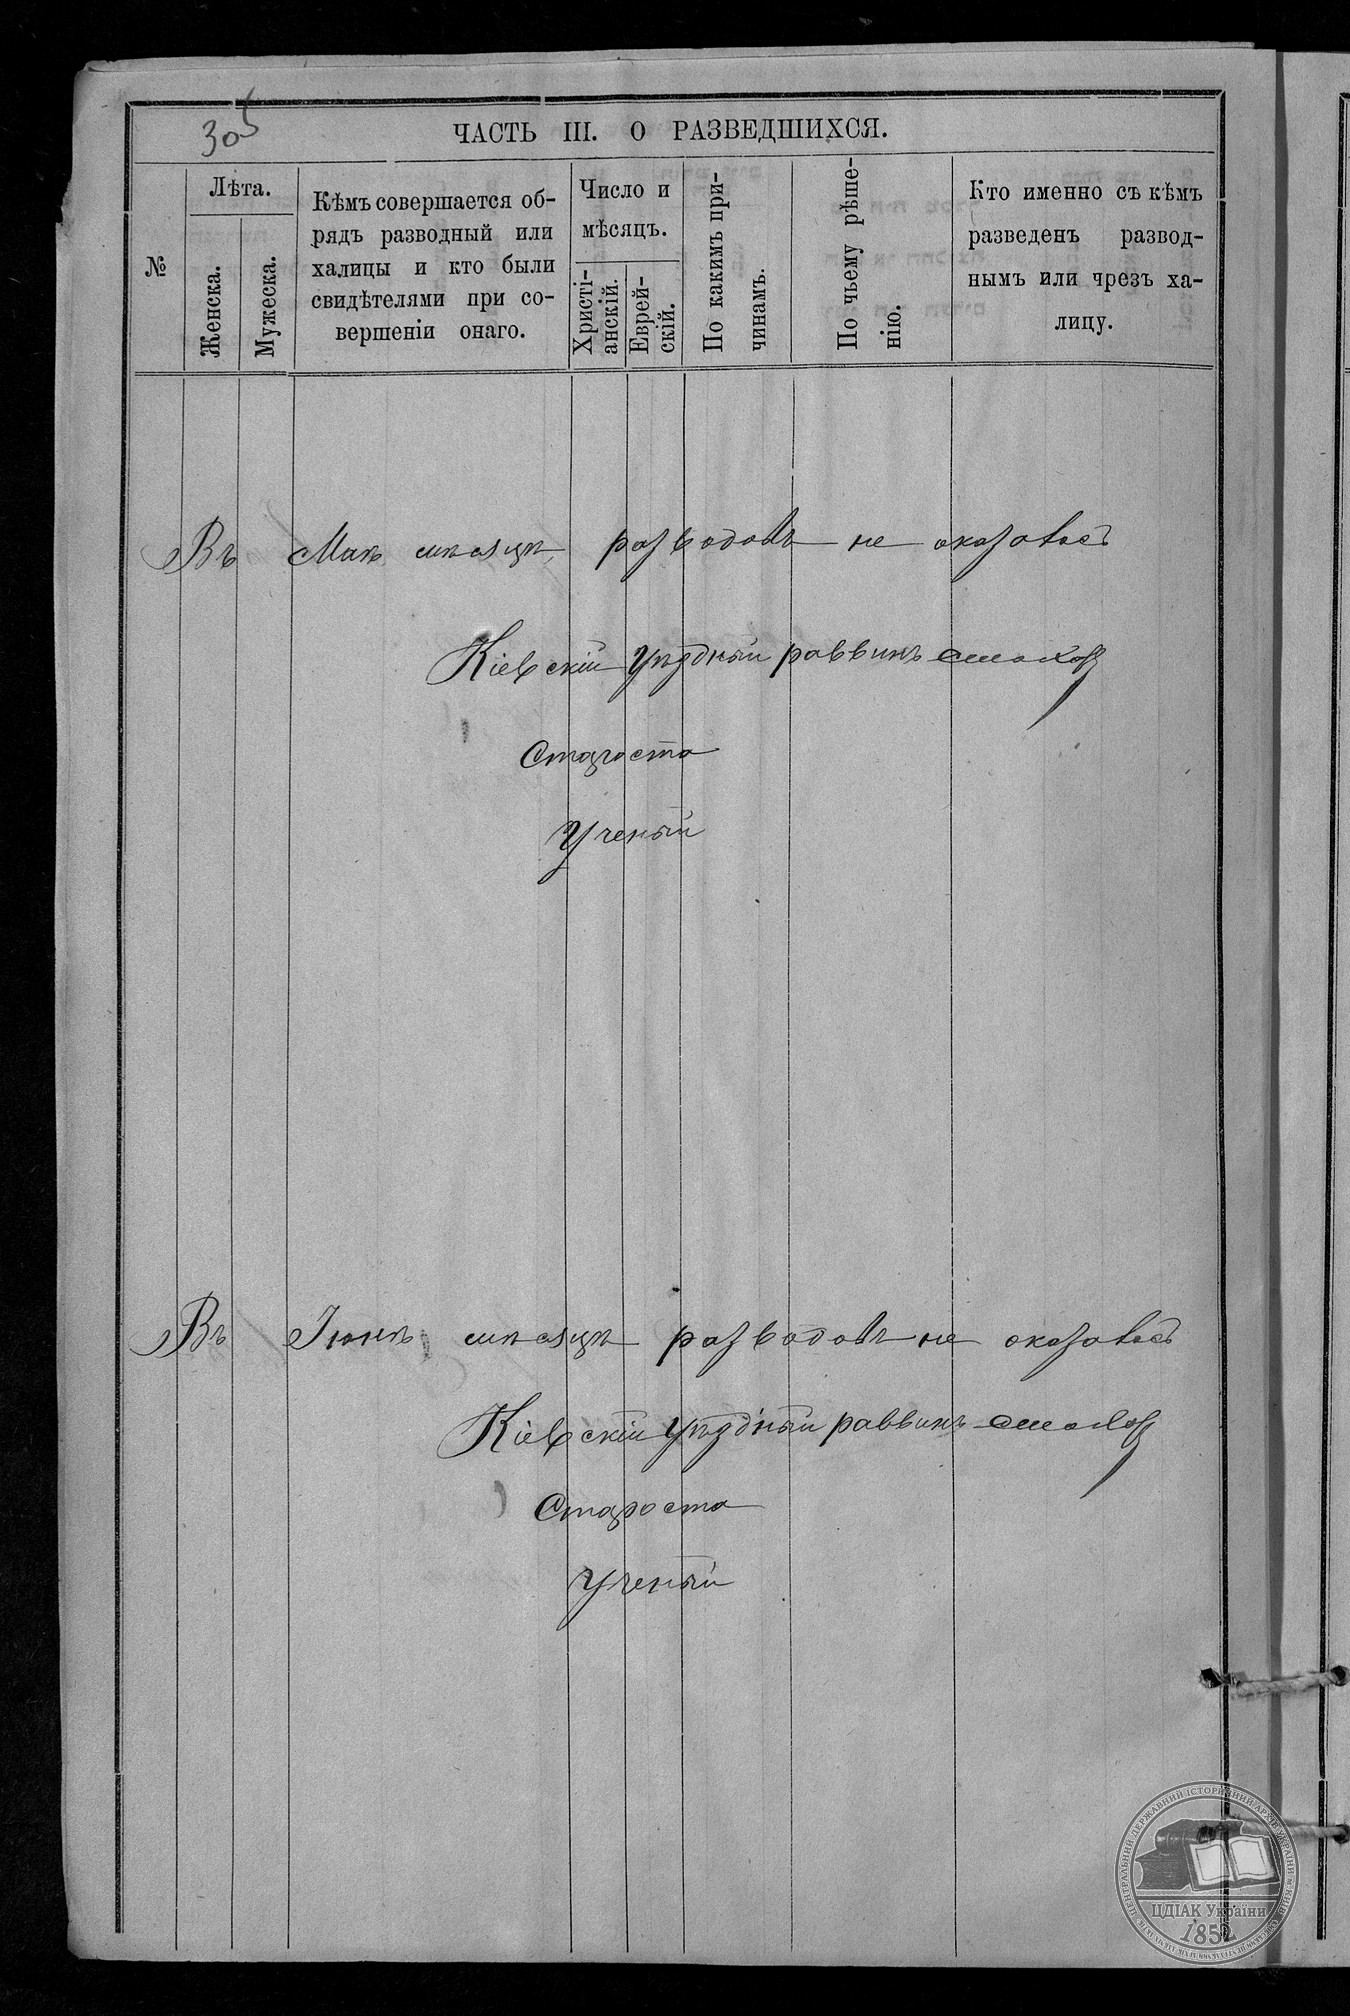 305
ЧАСТЬ III. О РАЗВЕДШИХСЯ.
№
Лѣта.
Женска.
Мужеска.
Кѣмъ совершается об-
рядъ разводный или
халицы и кто были
свидѣтелями при со-
вершеніи онаго.
Число и
мѣсяцъ.
Христі-
анскій.
Еврей-
скій.
По какимъ при-
чинамъ.
По чьему рѣше-
нію.
Кто именно съ кѣмъ
разведенъ развод-
нымъ или чрезъ ха-
лицу.
Въ Маѣ мѣсяцѣ разводовъ не оказалось
Кіевскій Уѣздный раввинъ
Староста
Ученый
Въ Іюнѣ мѣсяцѣ разводовъ не оказалось
Кіевскій Уѣздный раввинъ
Староста
Ученый
ЦЕНТРАЛЬНИЙ ДЕРЖАВНИЙ ІСТОРИЧНИЙ АРХІВ УКРАЇНИ, м. КИЇВ
ЦДІАК України
1852